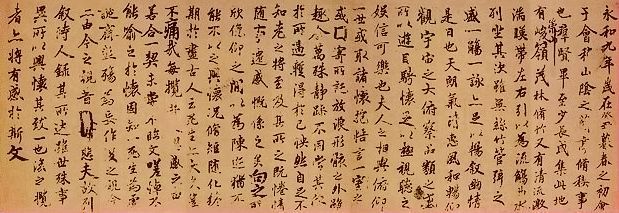 永和九年歲在癸丑暮春之初會
于會稽山陰之蘭亭脩稧事
也群賢畢至少長咸集此地
有峻領茂林脩竹又有清流激
湍暎帶左右引以為流觴曲水
列坐其次雖無絲竹管弦之
盛一觴一詠亦足以暢敘幽情
是日也天朗氣清惠風和暢仰
觀宇宙之大俯察品類之盛
所以遊目騁懷足以極視聽之
娛信可樂也夫人之相與俯仰
一世或取諸懷抱悟言一室之
或因寄所託放浪形骸之外雖
趣舍萬殊靜躁不同當其欣
於所遇暫得於己怏然自足不
知老之將至及其所之既惓情
隨事遷感慨係之矣向之所
欣俛仰之間以為陳迹猶不
能不以之興懷況脩短隨化終
期於盡古人云死生亦大矣豈
不痛哉每攬感之
若合一契未嘗不臨文嗟悼不
能喻之於懷固知一死生為虛
誕齊彭殤為妄作後之視今
亦由今之視昔悲夫故列
敘時人錄其所述雖世殊事
異所以興懷其致一也後之攬
者亦將有感於斯文